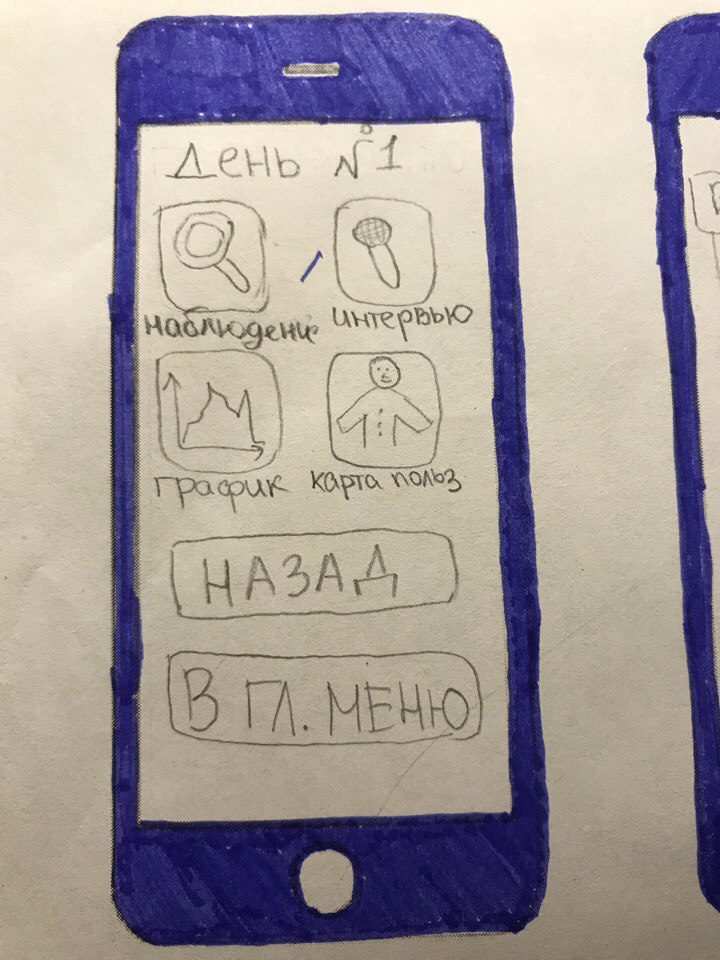 День №1
наблюдени интервью
график карта польз
НАЗАД
В ГЛ. МЕНЮ